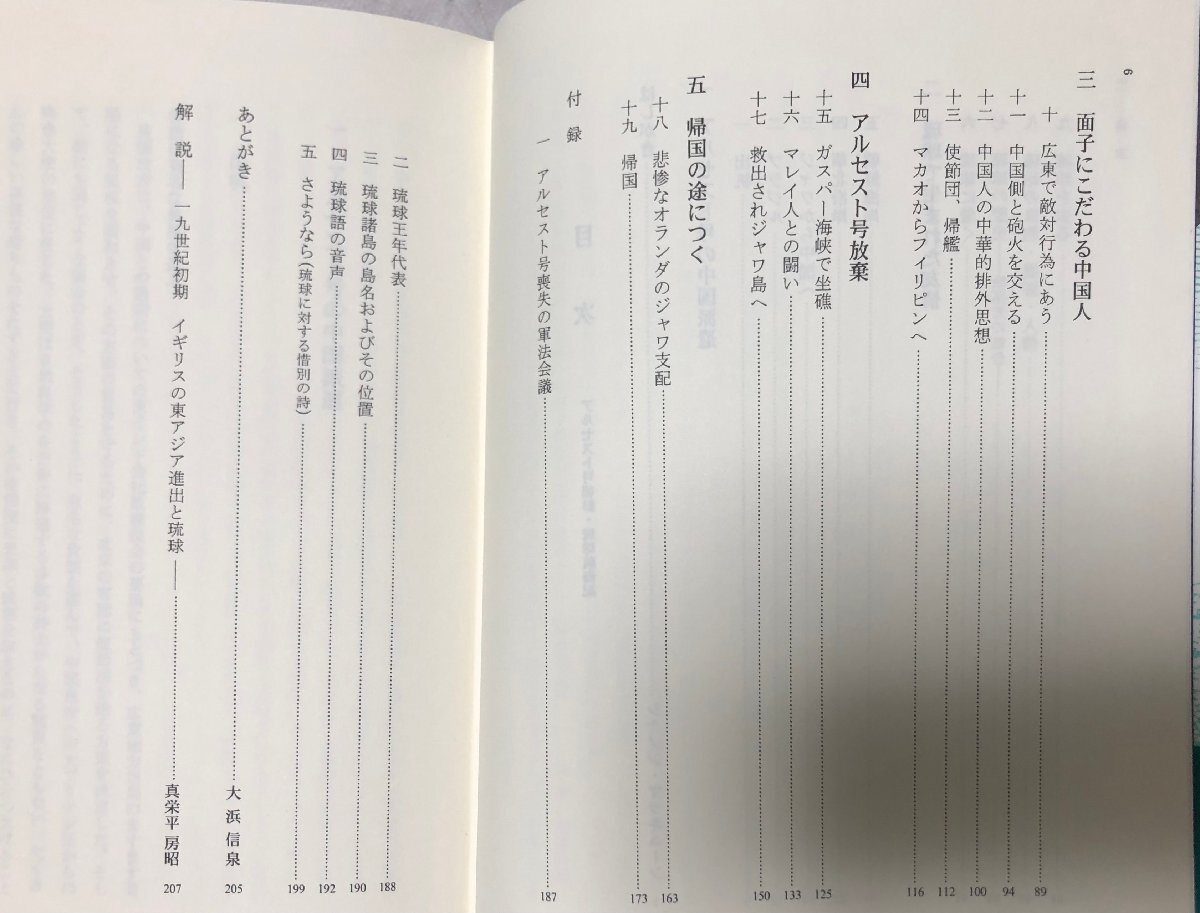 6
三 面子にこだわる中国人
十 広東で敵対行為にあう 89
十一 中国側と砲火を交える 94
十二 中国人の中華的排外思想 100
十三 使節団、帰艦 112
十四 マカオからフィリピンへ 116
四 アルセスト号放棄
十五 ガスパー海峡で坐礁 125
十六 マレイ人との闘い 133
十七 救出されジャワ島へ 150
五 帰国の途につく
十八 悲惨なオランダのジャワ支配 163
十九 帰国 173
付録
一 アルセスト号喪失の軍法会議 187
二 琉球王年代表 188
三 琉球諸島の島名およびその位置 190
四 琉球語の音声 192
五 さようなら(琉球に対する惜別の詩) 199
あとがき 大浜信泉 205
解説――一九世紀初期 イギリスの東アジア進出と琉球―― 真栄平房昭 207